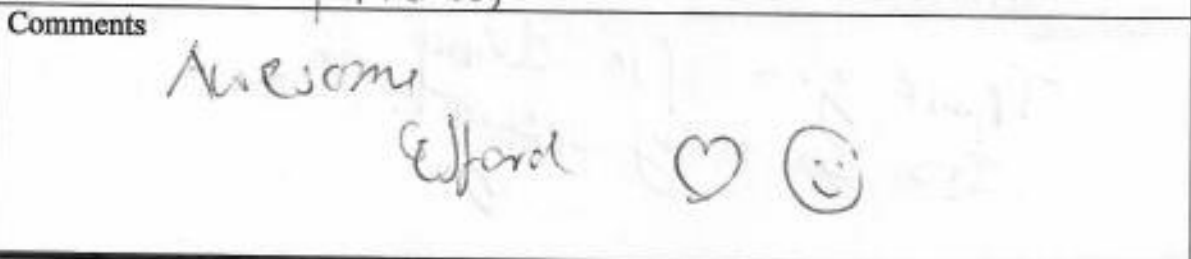 Comments
Awesome
Efford ♡ ☺